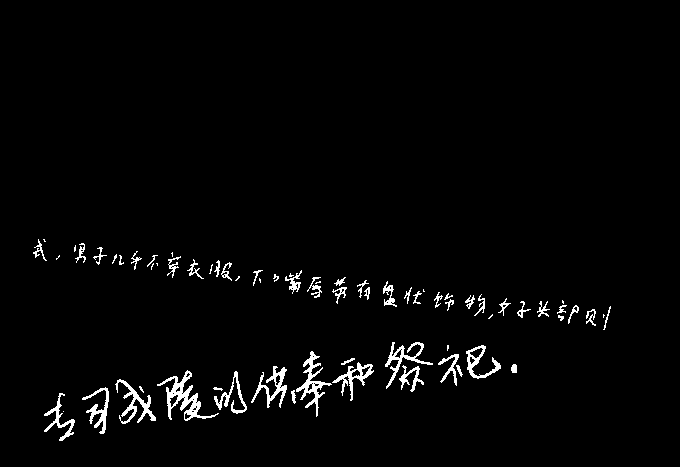 式,男子几乎不穿衣服,下嘴唇带有盘状饰物,女子头部则
专司成陵的供奉和祭祀.